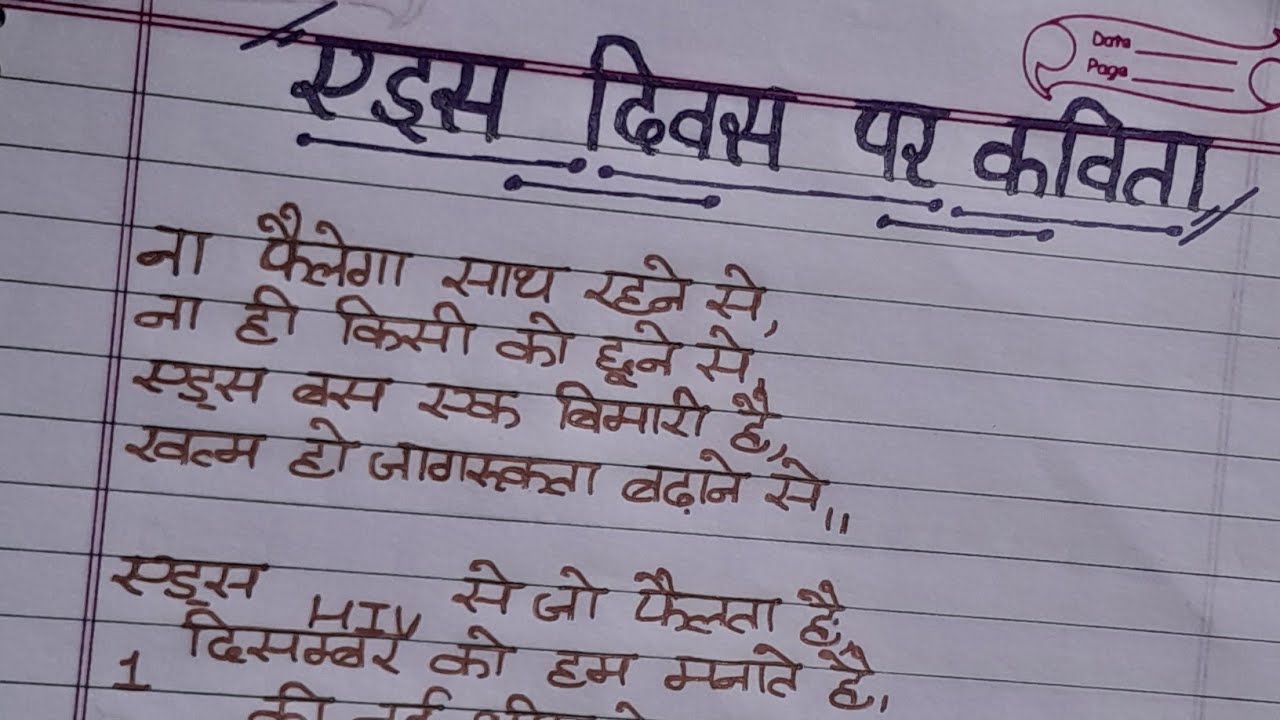 Date
Page
एड्स दिवस पर कविता
ना फैलेगा साथ रहने से,
ना ही किसी को छूने से,
एड्स बस एक बिमारी है,,
खत्म हो जागरूकता बढ़ाने से,॥
एड्स HIV से जो फैलता है,,
1 दिसम्बर को हम मनाते है,
की